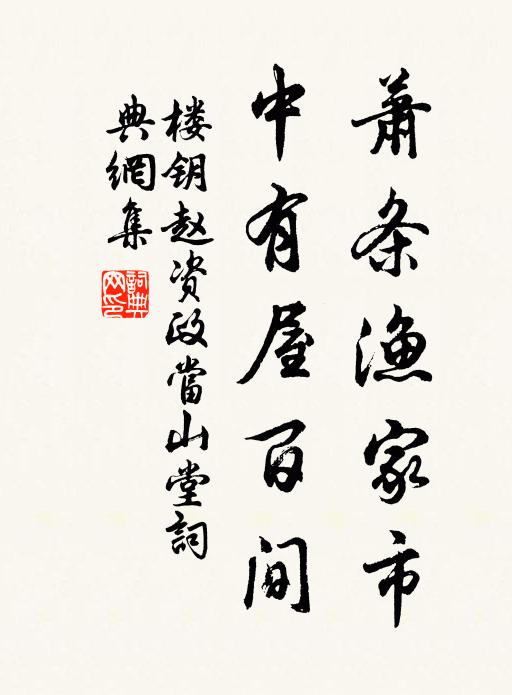 蕭条漁家市
中有屋百间
楼钥赵资政當山堂詞
典網集
詞典網印